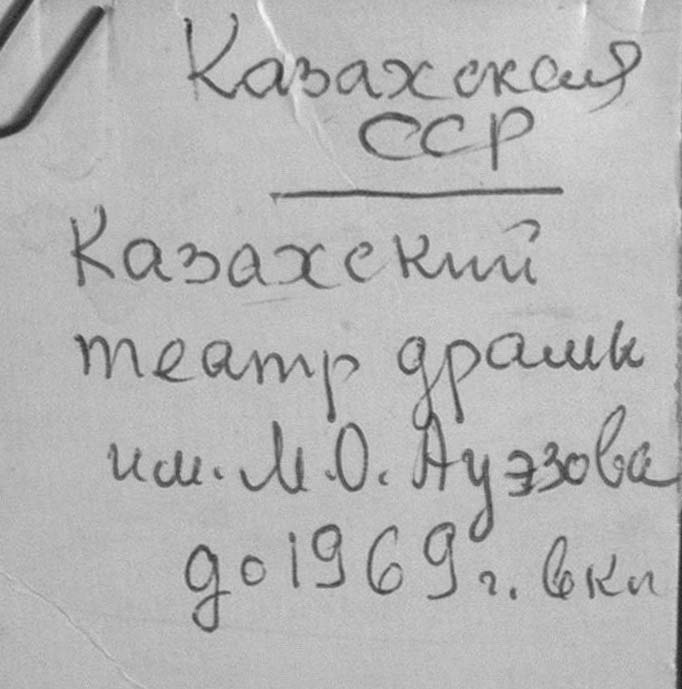 Казахская
ССР
Казахский
театр драмы
им. М.О. Ауэзова
до 1969 г. вкл